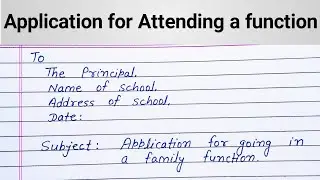 Application for Attending a function
To
The Principal.
Name of school.
Address of school.
Date:
Subject: Application for going in
a family function.